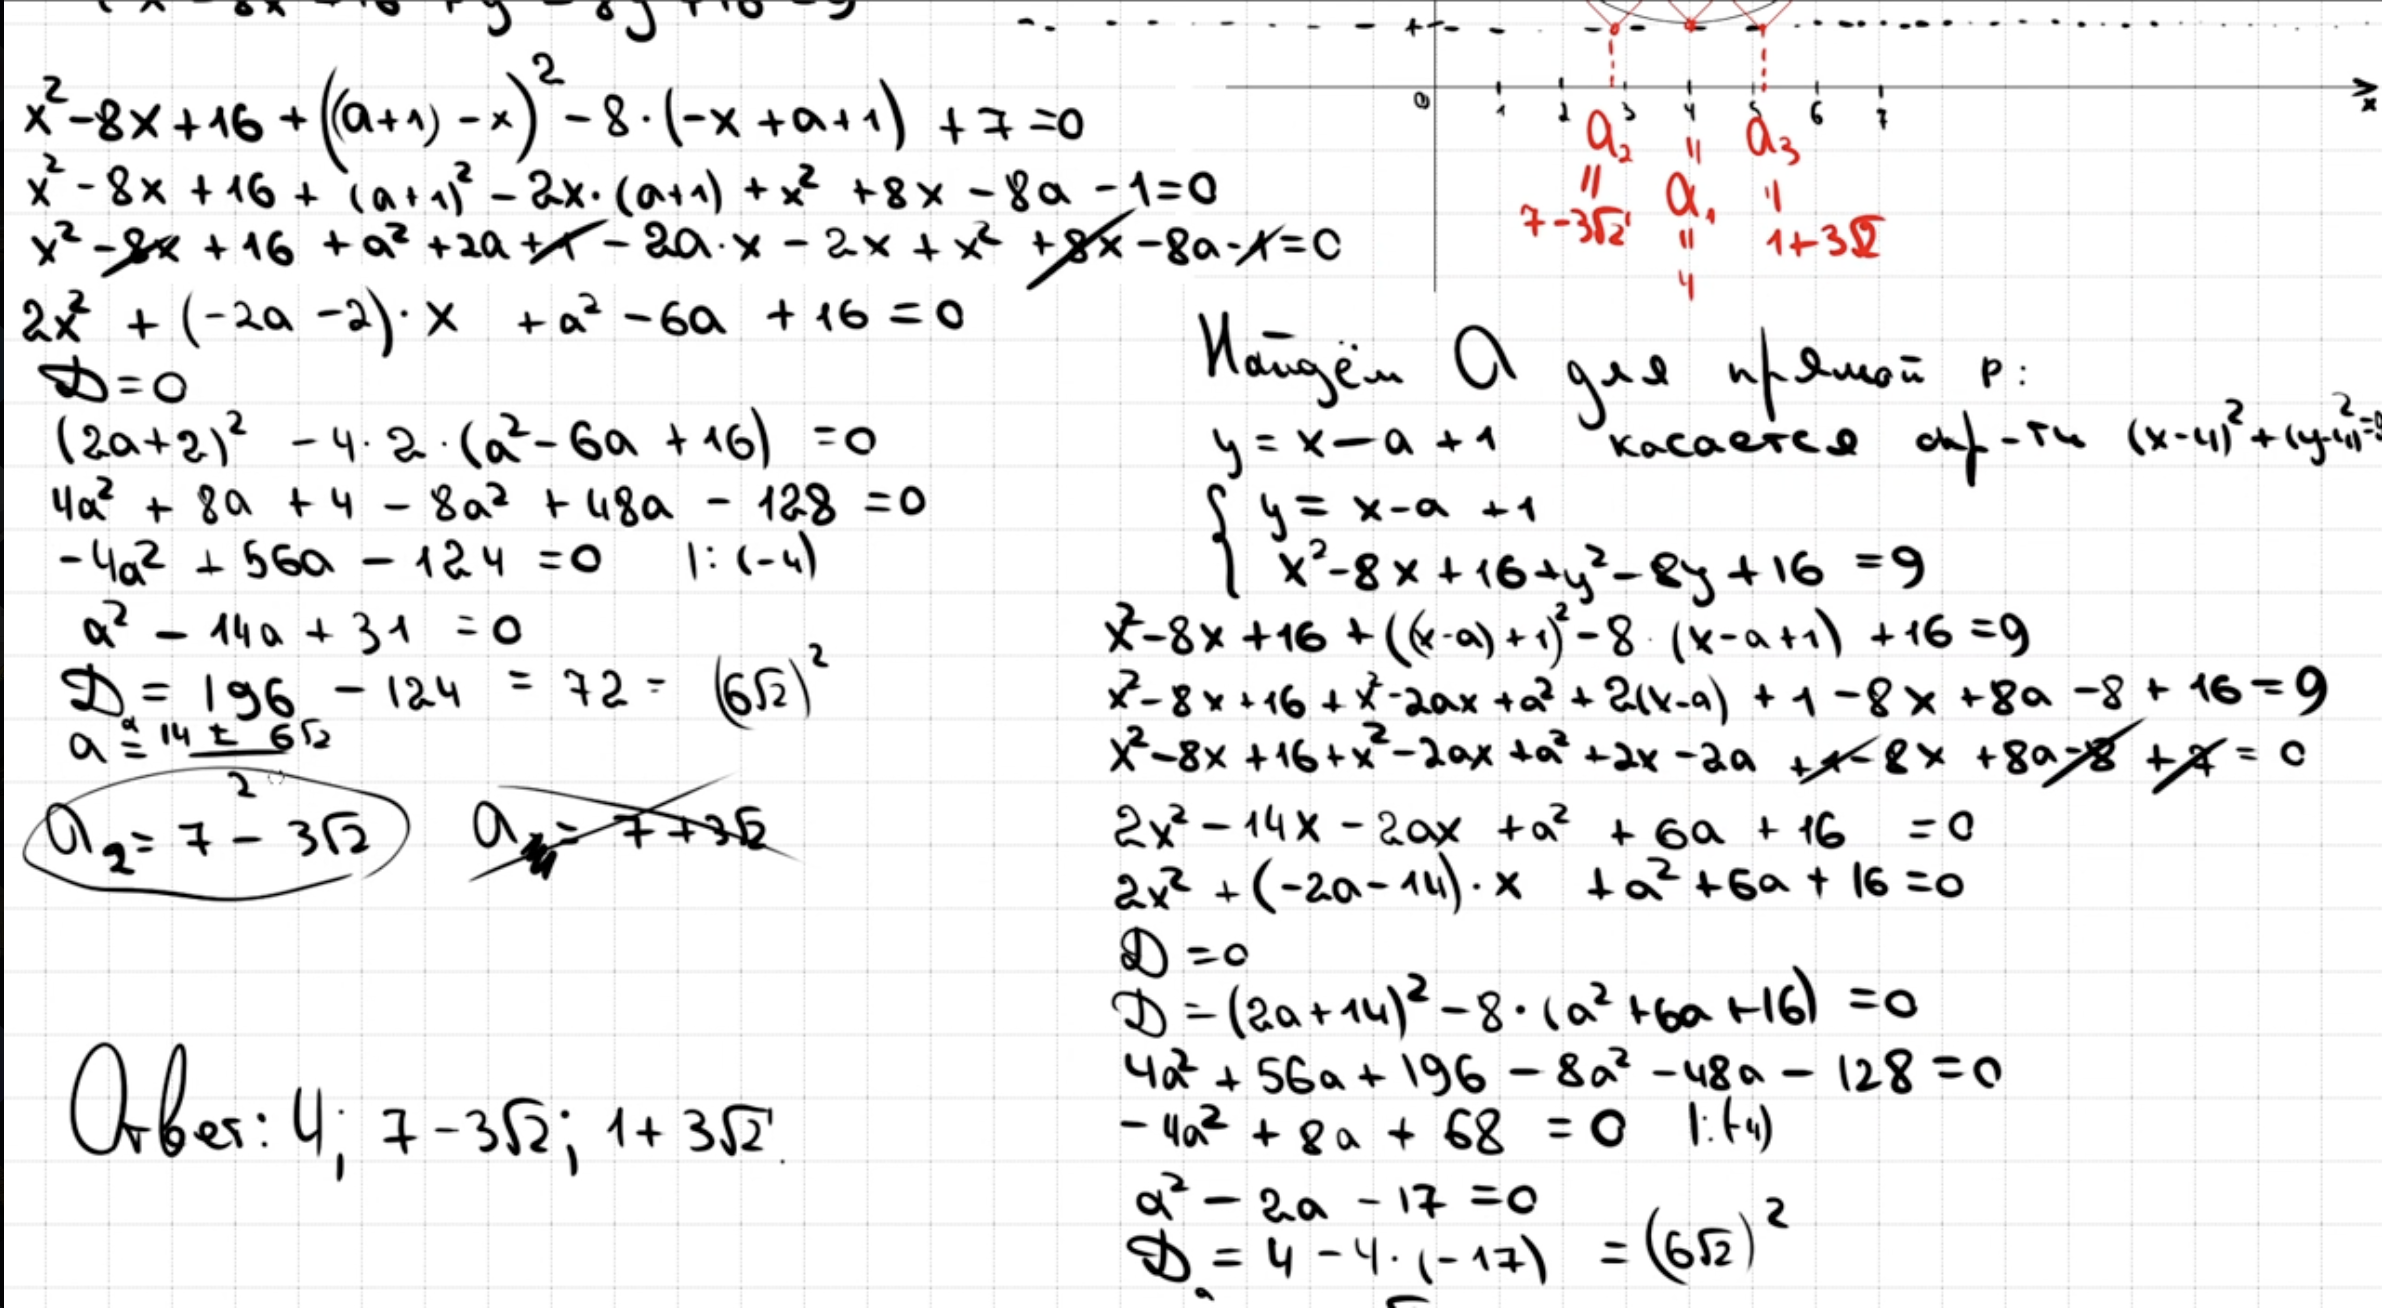 x²-8x+16+((a+1)-x)²-8·(-x+a+1)+7=0
x²-8x+16+(a+1)²-2x·(a+1)+x²+8x-8a-1=0
x²-8x+16+a²+2a+1-2a·x-2x+x²+8x-8a-1=0
2x²+(-2a-2)·x+a²-6a+16=0
D=0
(2a+2)²-4·2·(a²-6a+16)=0
4a²+8a+4-8a²+48a-128=0
-4a²+56a-124=0 |:(-4)
a²-14a+31=0
D=196-124=72=(6√2)²
a=(14±6√2)/2
a₂=7-3√2 a=7+3√2
Ответ: 4; 7-3√2; 1+3√2.
1
0 1 2 3 4 5 6 7 x
a₂ = 7-3√2
a₁ = 4
a₃ = 1+3√2
Найдём a для прямой p:
y=x-a+1 касается окр-ти (x-4)²+(y-4)²=9
y=x-a+1
x²-8x+16+y²-8y+16=9
x²-8x+16+((x-a)+1)²-8·(x-a+1)+16=9
x²-8x+16+x²-2ax+a²+2(x-a)+1-8x+8a-8+16=9
x²-8x+16+x²-2ax+a²+2x-2a+1-8x+8a-8+7=0
2x²-14x-2ax+a²+6a+16=0
2x²+(-2a-14)·x+a²+6a+16=0
D=0
D=(2a+14)²-8·(a²+6a+16)=0
4a²+56a+196-8a²-48a-128=0
-4a²+8a+68=0 |:(-4)
a²-2a-17=0
D=4-4·(-17)=(6√2)²